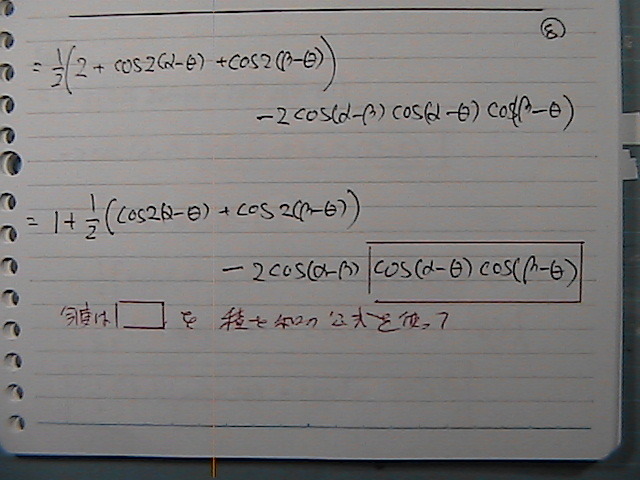 ⑧
= 1/2(2 + cos2(α-θ) + cos2(β-θ))
-2cos(α-β) cos(α-θ) cos(β-θ)
= 1 + 1/2(cos2(α-θ) + cos2(β-θ))
- 2cos(α-β) cos(α-θ) cos(β-θ)
今度は□を 積→和の公式を使って